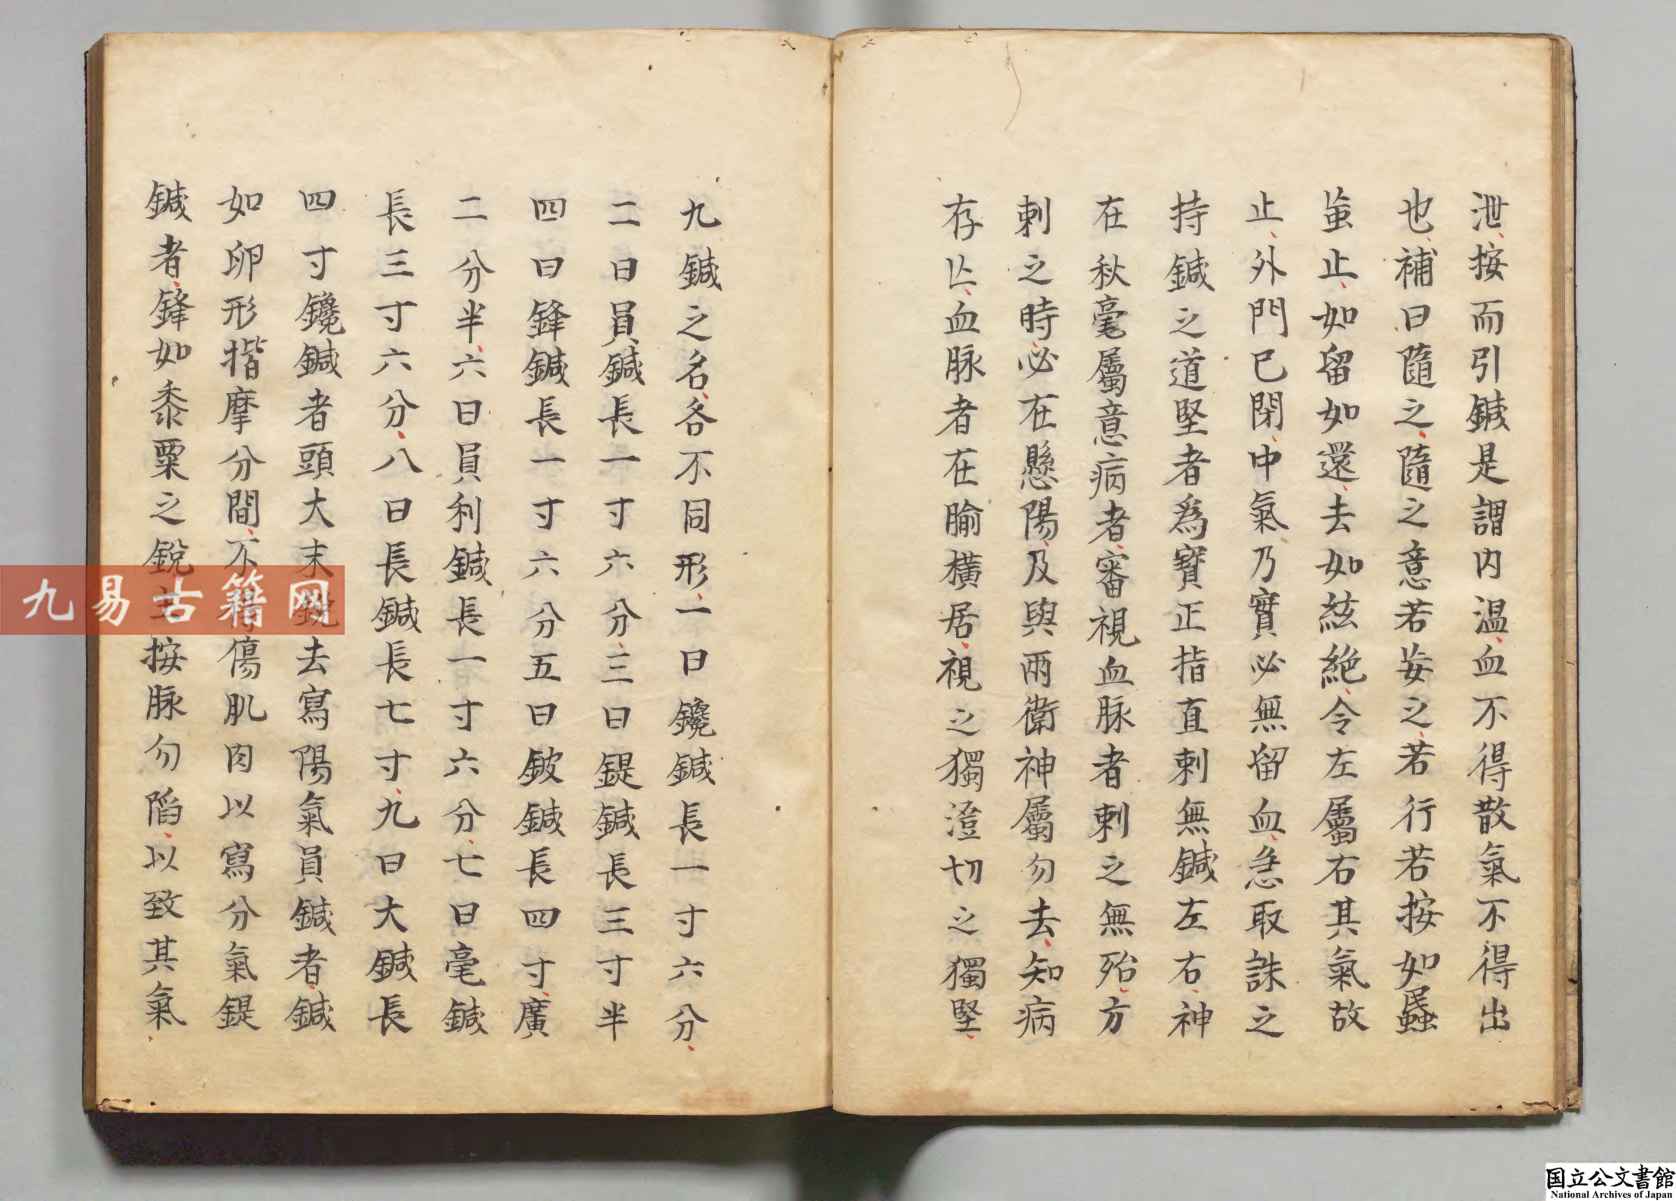 泄按而引鍼是謂內溫血不得散氣不得出
也補曰隨之隨之意若妄之若行若按如蟁
蝱止如留如還去如絃絶令左屬右其氣故
止外門已閉中氣乃實必無留血急取誅之
持鍼之道堅者爲寶正指直刺無鍼左右神
在秋毫屬意病者審視血脉者刺之無殆方
刺之時必在懸陽及與兩衛神屬勿去知病
存亾血脉者在腧橫居視之獨澄切之獨堅
九鍼之名各不同形一曰鑱鍼長一寸六分
二曰員鍼長一寸六分三曰鍉鍼長三寸半
四曰鋒鍼長一寸六分五曰鈹鍼長四寸廣
二分半六曰員利鍼長一寸六分七曰毫鍼
長三寸六分八曰長鍼長七寸九曰大鍼長
四寸鑱鍼者頭大末銳去寫陽氣員鍼者鍼
如卵形揩摩分間不得傷肌肉以寫分氣鍉
鍼者鋒如黍粟之銳主按脉勿陷以致其氣
九易古籍网
国立公文書館
National Archives of Japan